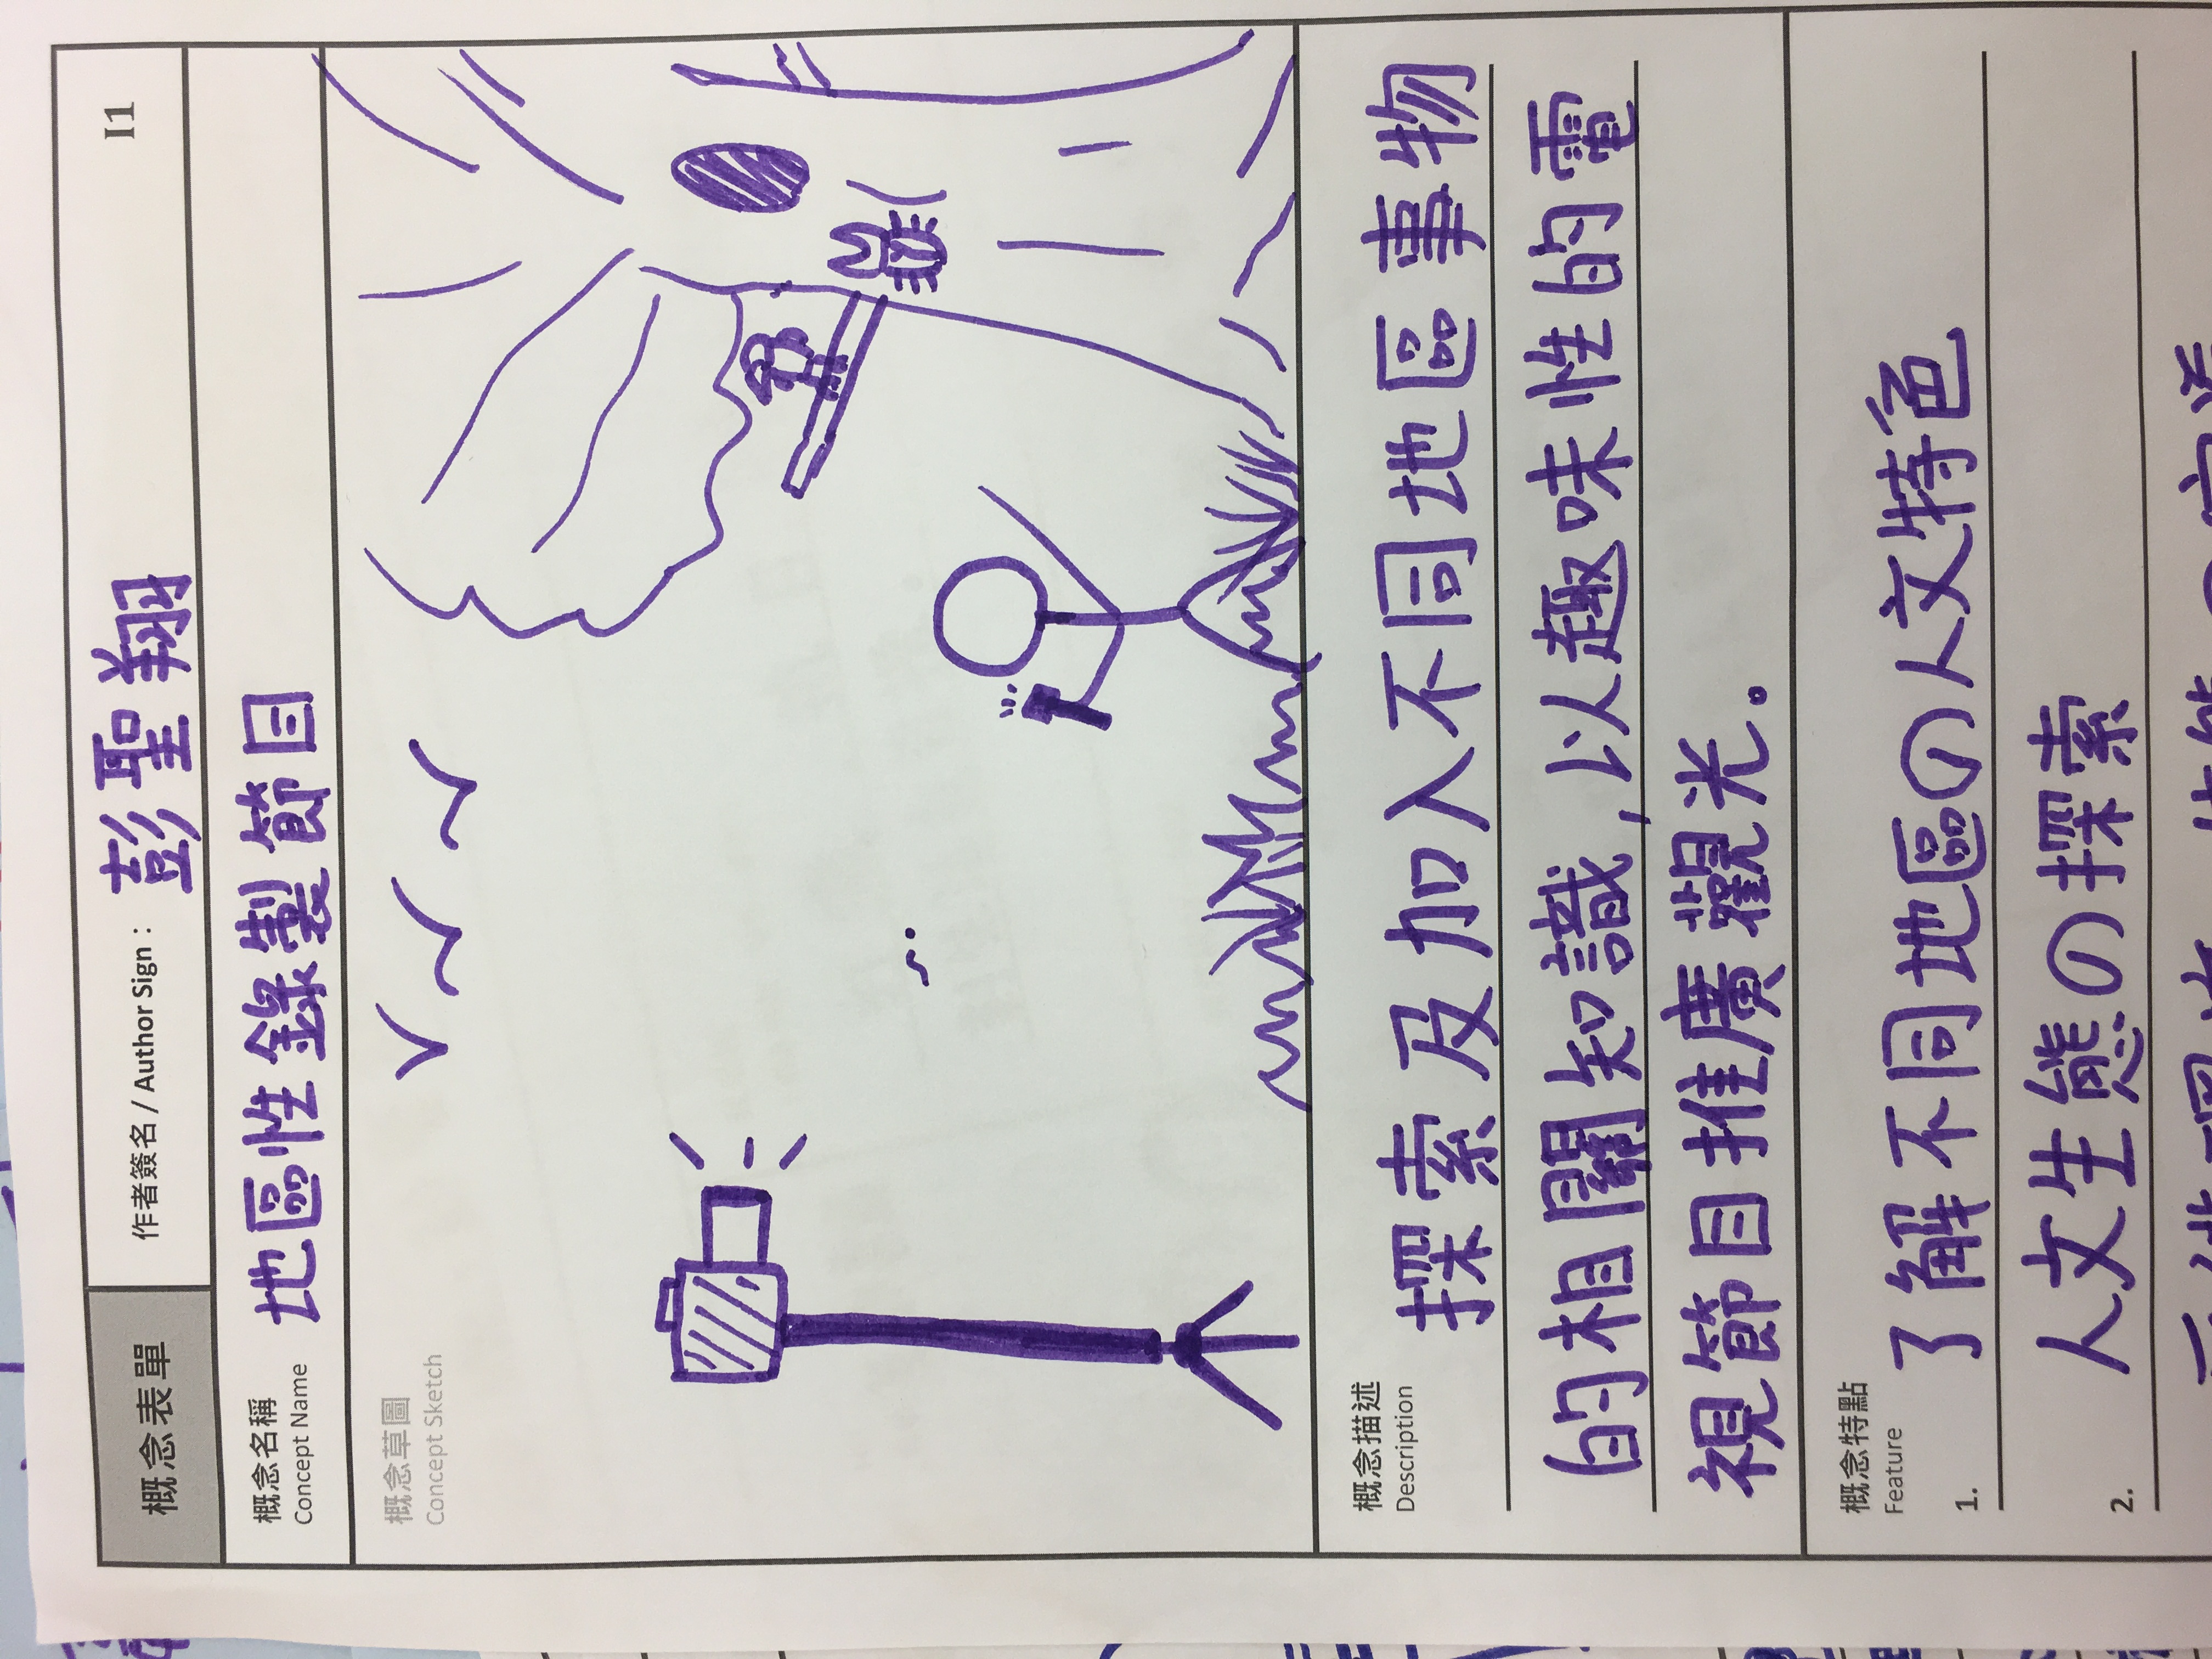 概念表單
作者簽名 / Author Sign： 彭聖翔
I1
概念名稱 地區性錄製節目
Concept Name
概念草圖
Concept Sketch
概念描述
Description
探索及加入不同地區事物
的相關知識,以趣味性的電
視節目推廣觀光。
概念特點
Feature
1. 了解不同地區の人文特色
2. 人文生態の探索